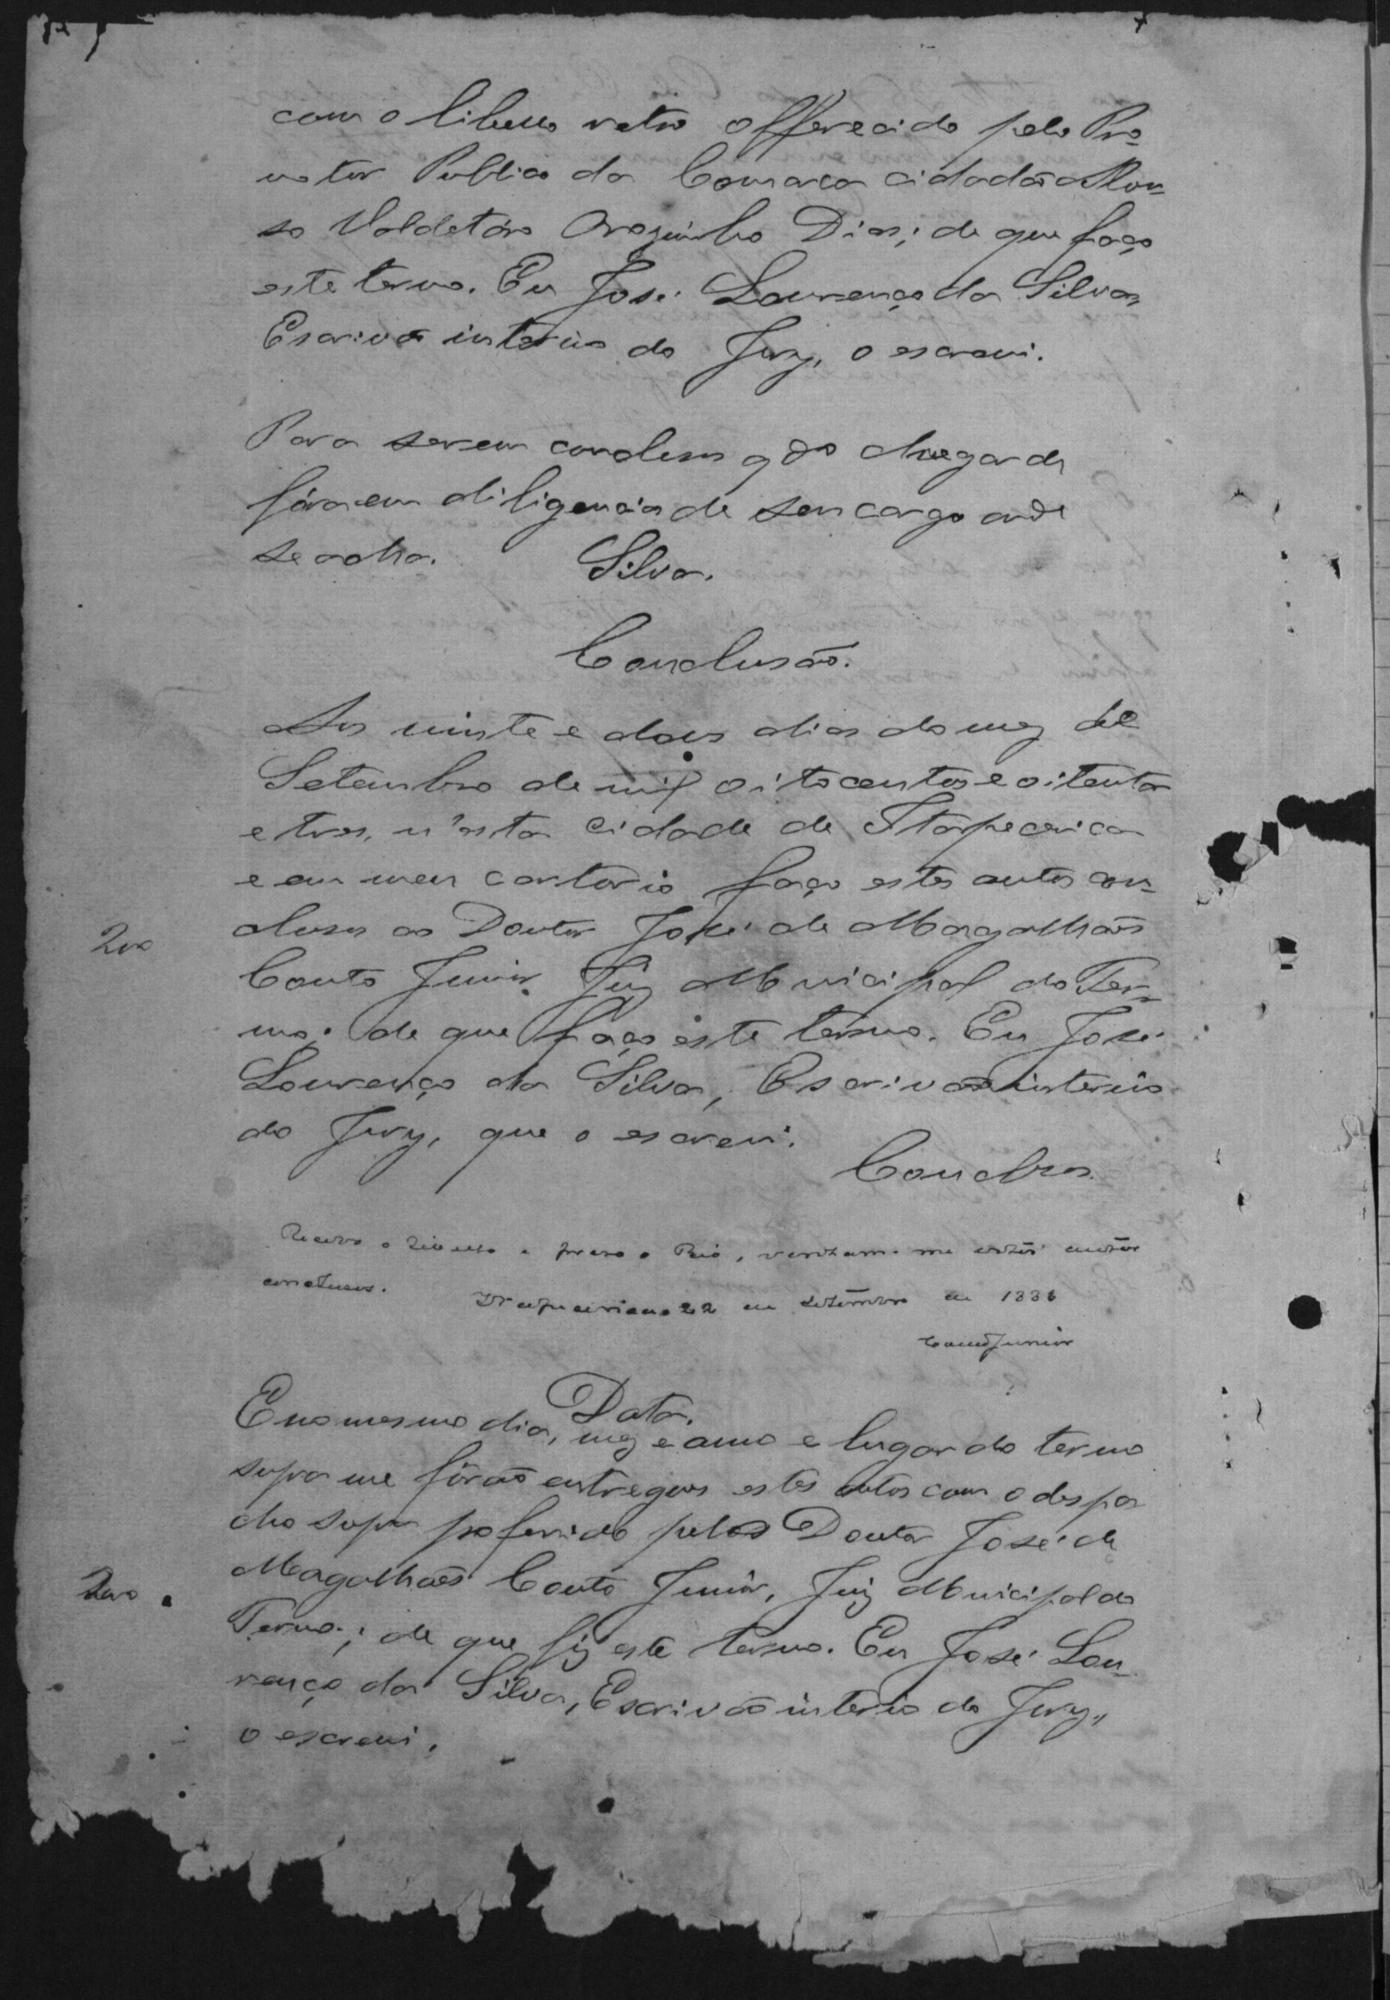 com o libello retro offerecido pelo Pro-
motor Publico da Comarca cidadão Affon-
so Valdetáro Orozimbo Dias; de que faço
este termo. Eu José Lourenço da Silva,
Escrivão interino do Jury, o escrevi.
Para serem conclusos qdo chegar de
fóra em diligencia de seu cargo onde
se acha. Silva.
Conclusão.
Aos vinte e dous dias do mez de
Setembro de mil oitocentos e oitenta
e tres, n'esta Cidade de Itapecerica
e em meu cartorio faço estes autos con-
clusos ao Doutor José de Magalhães
200
Couto Junior Juiz Municipal do Ter-
mo; de que faço este termo. Eu José
Lourenço da Silva, Escrivão interino
do Jury, que o escrevi.
Conclsos.
Recebo o libello e preso o Réo, venham-me estes autos
conclusos.
Itapecerica 22 de Setembro de 1883
Couto Junior
Data.
E no mesmo dia, mez e anno e lugar do termo
supra me fôrão entregues estes autos com o despa
cho supra proferido pelo Doutor José de
Magalhães Couto Junior, Juiz Municipal do
200
Termo; de que fiz este termo. Eu José Lou-
renço da Silva, Escrivão interino do Jury,
o escrevi.